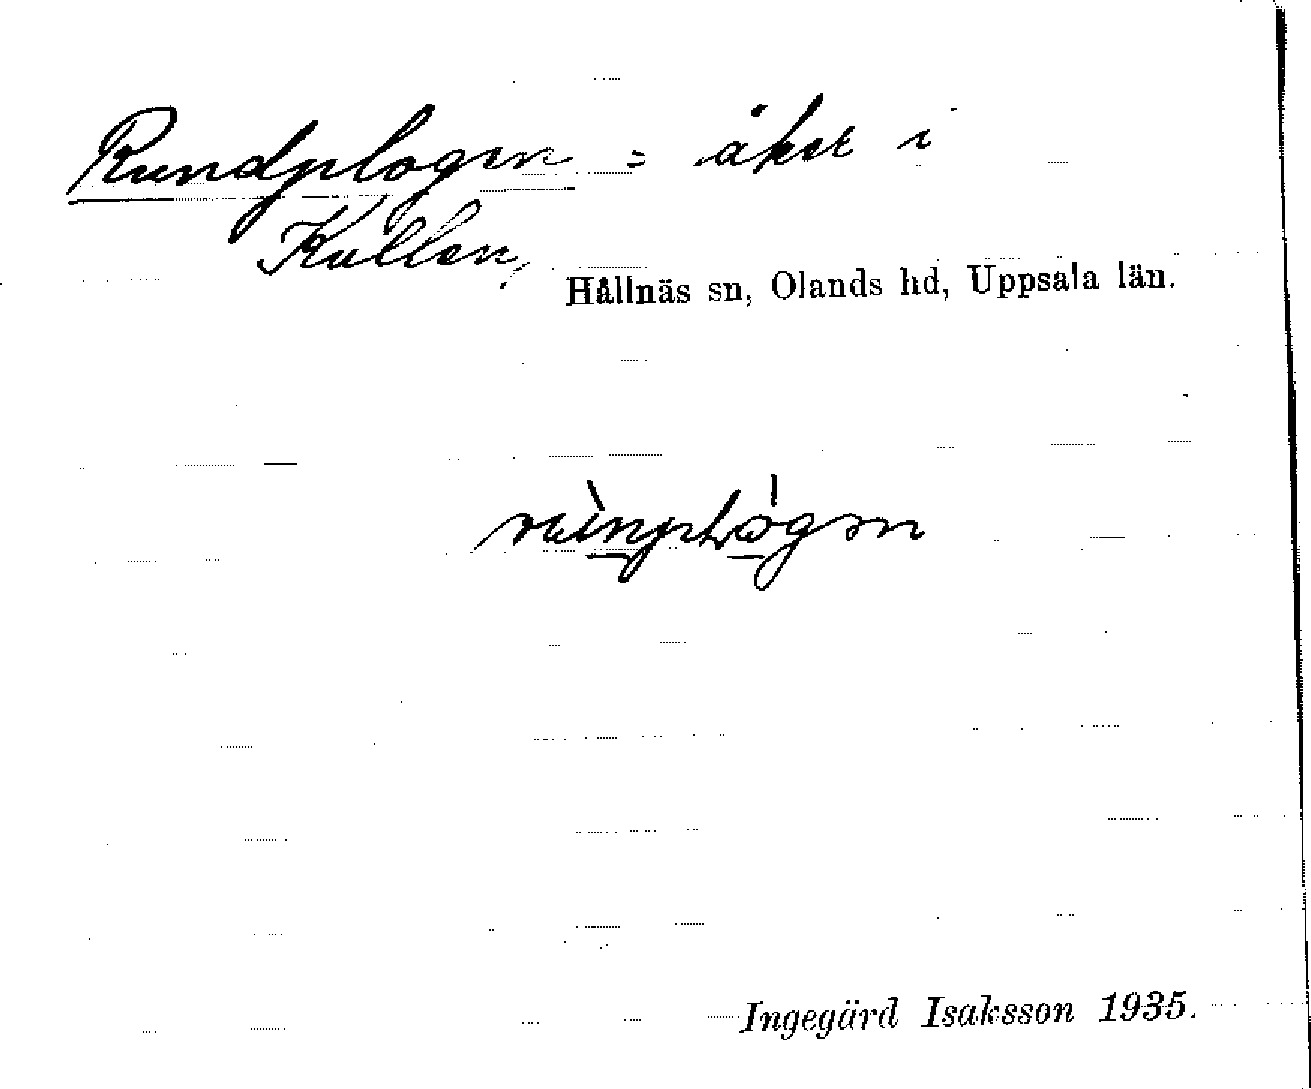 Rundplogen = åker i
Kullen,
Hållnäs sn, Olands hd, Uppsala län.
Ingegärd Isaksson 1935.